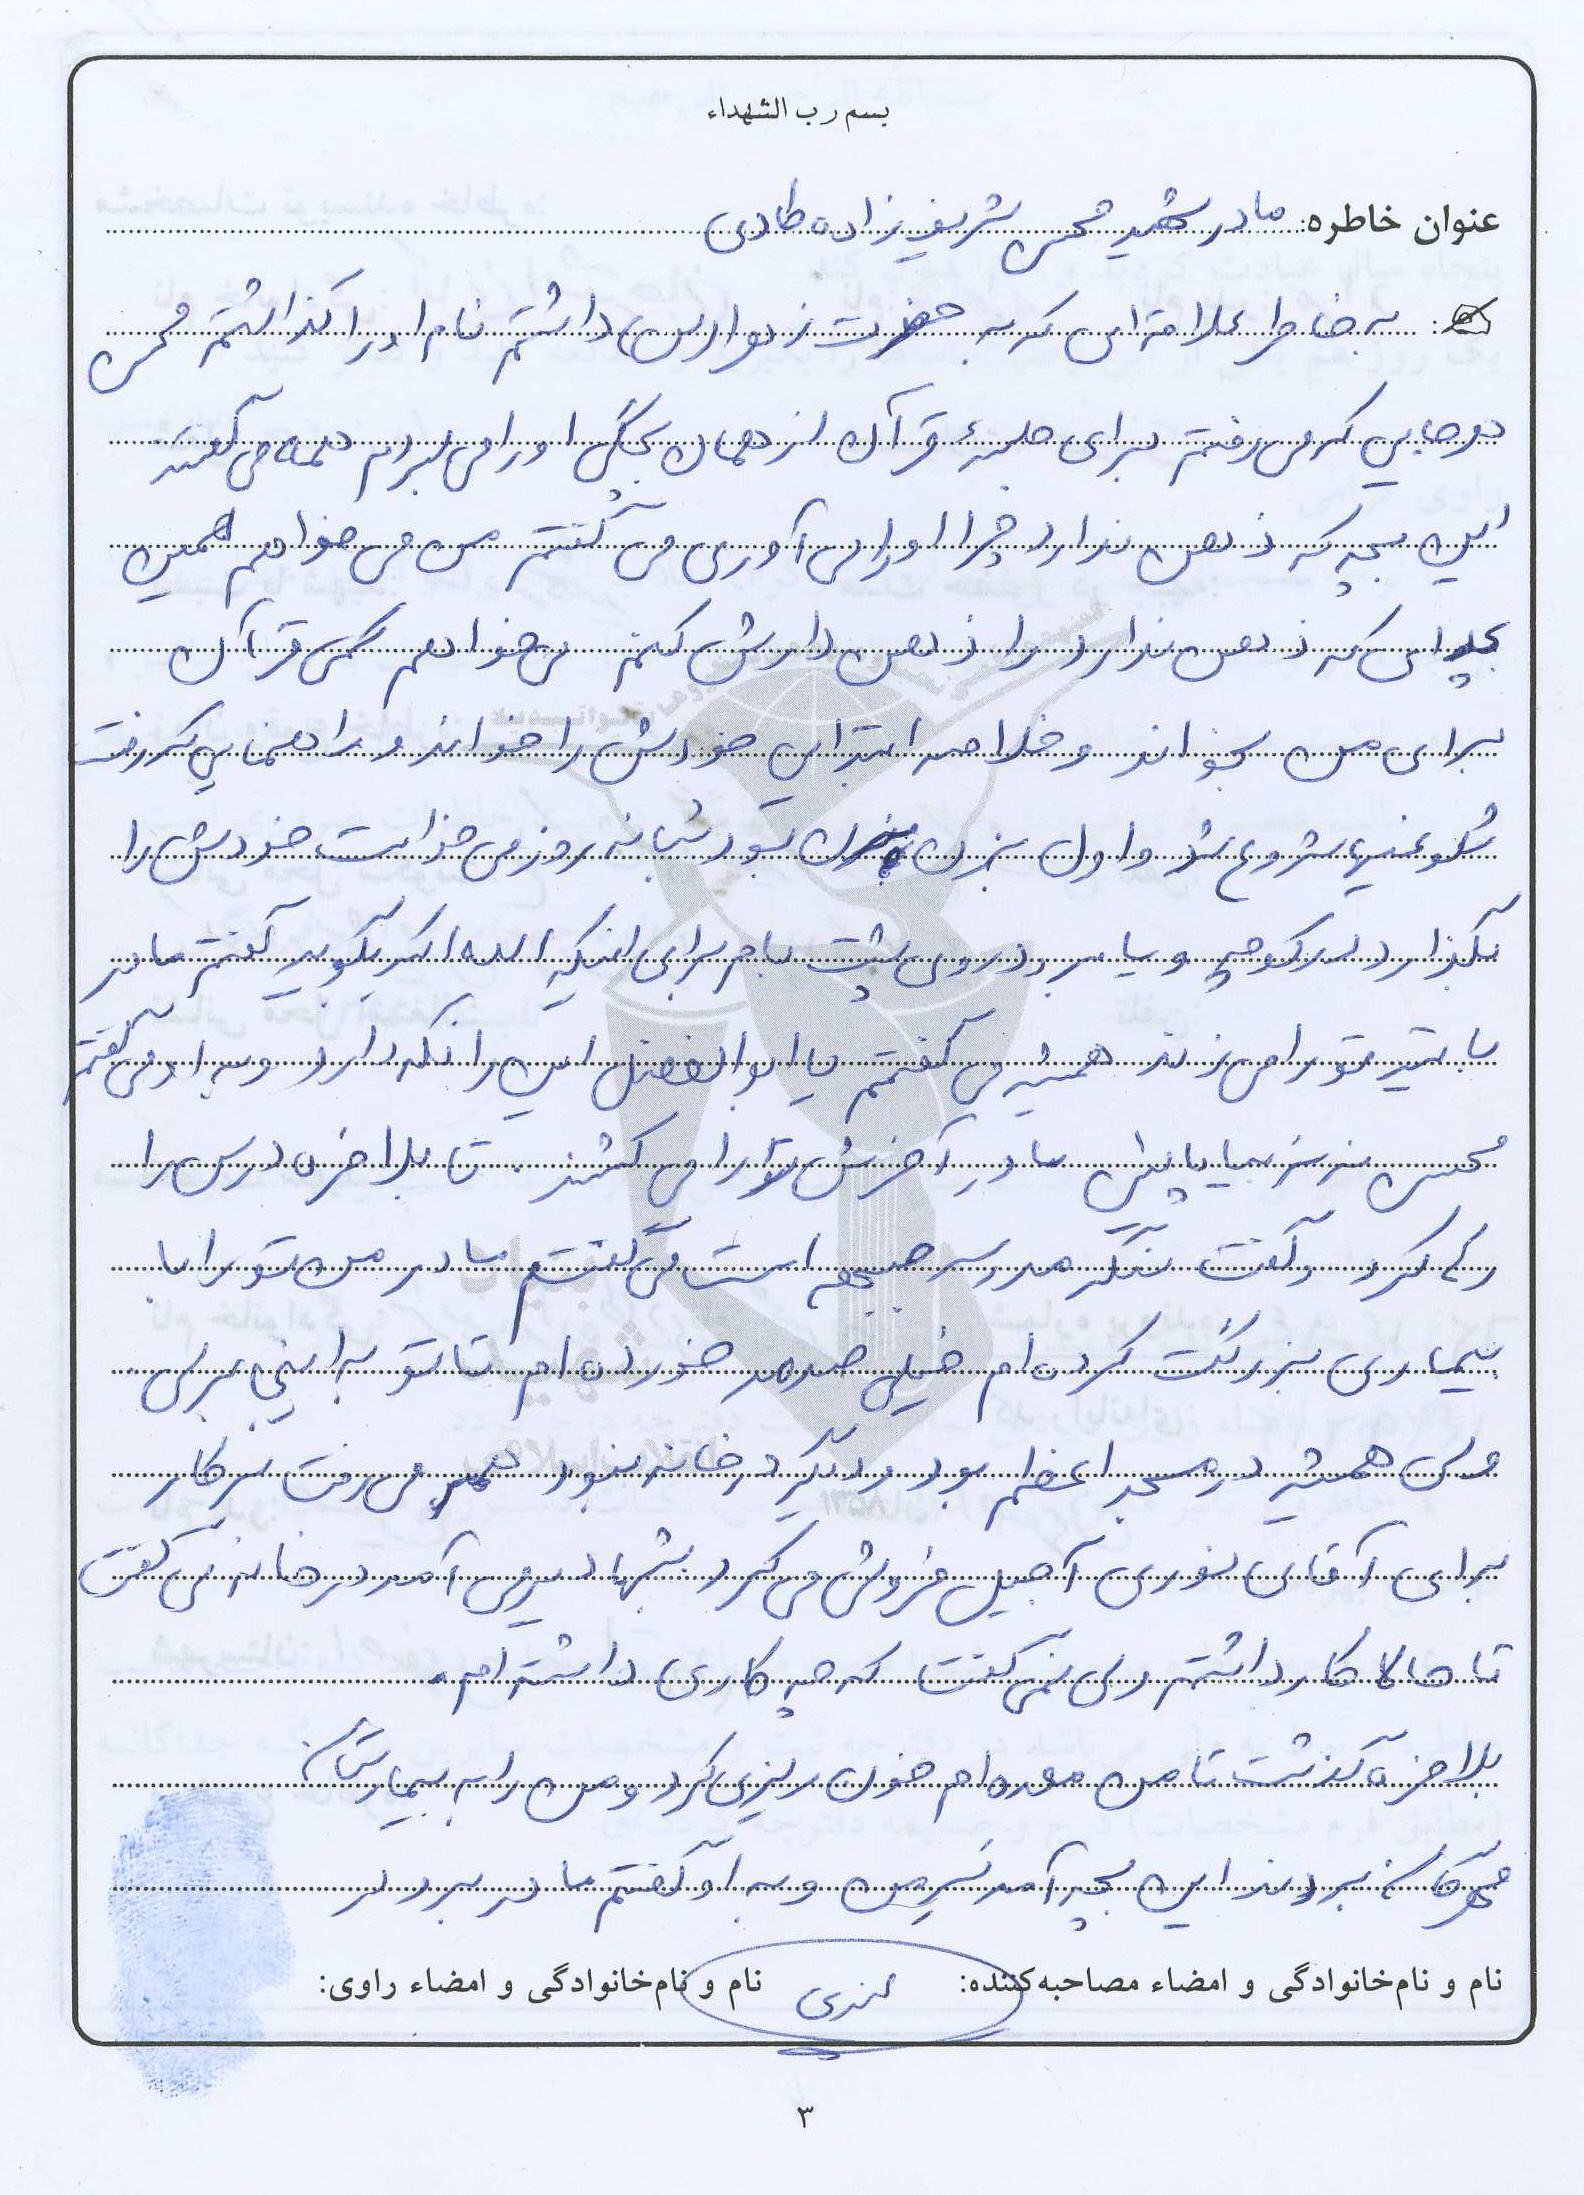 بسم رب الشهداء
عنوان خاطره: مادر شهید محسن شریف زاده طادی
به خاطر علاقه ای که به حضرت زهرا (س) داشتم نام او را گذاشتم محسن
هر جایی که می رفتم برای جلسهٔ قرآن از همان بچگی او را می بردم همه می گفتند
این بچه که ذهن ندارد چرا او را می آوری می گفتم من می خواهم همین
بچه ای که ذهن ندارد را ذهن دارش کنم می خواهم کمی قرآن
برای من بخواند و خلاصه ابتدایی خودش را خواند و راهنمایی که رفت
شلوغی ها شروع شد و اول بزن بزن بود شبانه روز می خواست خودش را
بگذارد در کوچه و یا برود روی پشت بام برای اینکه الله اکبر بگوید گفتم مادر
با تیر تو را می زنند همیشه می گفتم یا ابوالفضل این را نگه دارد و به او می گفتم
محسن نرو بیا پایین مادر آخرش تو را می کشند. تا بلاخره درس را
رها کرد و گفت سنگر مدرسه جبهه است می گفتم مادر من تو را با
بیماری بزرگت کرده ام خیلی صدمه خورده ام تا تو به اینجا برسی
ولی همیشه در مسجد اعظم بود و دیگر در خانه نبود می رفت سر کار
برای آقای نوری آجیل فروشی می کرد شبها دیر می آمد در خانه می گفت
تا حالا کار داشتم ولی نمی گفت که چه کاری داشته ام.
بلاخره گذشت تا من معده ام خون ریزی کرد و من را به بیمارستان
مهرگان بردند این بچه آمد سر من و به او گفتم مادر برو در
نام و نام‌خانوادگی و امضاء مصاحبه‌کننده:
نام و نام‌خانوادگی و امضاء راوی:
۳